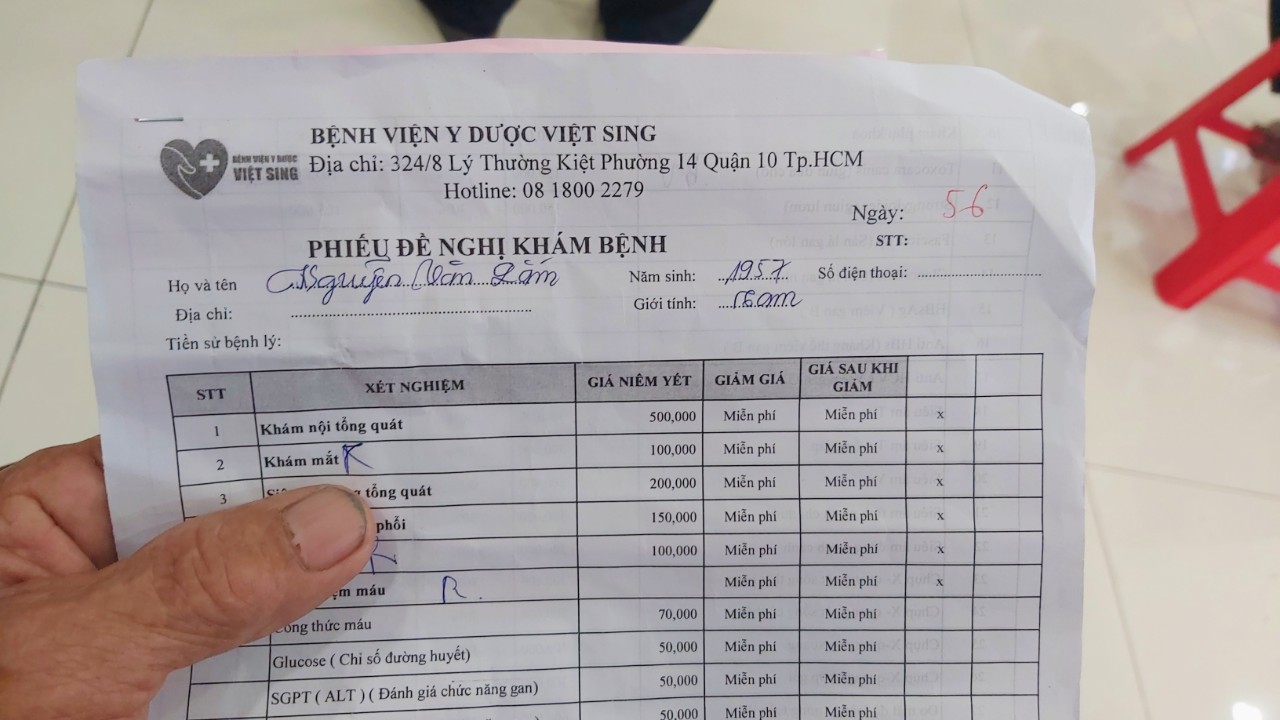 BỆNH VIỆN Y DƯỢC
VIỆT SING
BỆNH VIỆN Y DƯỢC VIỆT SING
Địa chỉ: 324/8 Lý Thường Kiệt Phường 14 Quận 10 Tp.HCM
Hotline: 08 1800 2279
Ngày: 56
PHIẾU ĐỀ NGHỊ KHÁM BỆNH STT:
Họ và tên Nguyễn Văn Năm sinh: 1957 Số điện thoại:
Địa chỉ: Giới tính: Nam
Tiền sử bệnh lý:
STT XÉT NGHIỆM GIÁ NIÊM YẾT GIẢM GIÁ GIÁ SAU KHI GIẢM
1 Khám nội tổng quát 500,000 Miễn phí Miễn phí x
2 Khám mắt K 100,000 Miễn phí Miễn phí x
3 tổng quát 200,000 Miễn phí Miễn phí x
phổi 150,000 Miễn phí Miễn phí x
100,000 Miễn phí Miễn phí x
máu R. Miễn phí Miễn phí x
Công thức máu 70,000 Miễn phí Miễn phí
Glucose ( Chỉ số đường huyết) 50,000 Miễn phí Miễn phí
SGPT ( ALT ) ( Đánh giá chức năng gan) 50,000 Miễn phí Miễn phí
50,000 Miễn phí Miễn phí